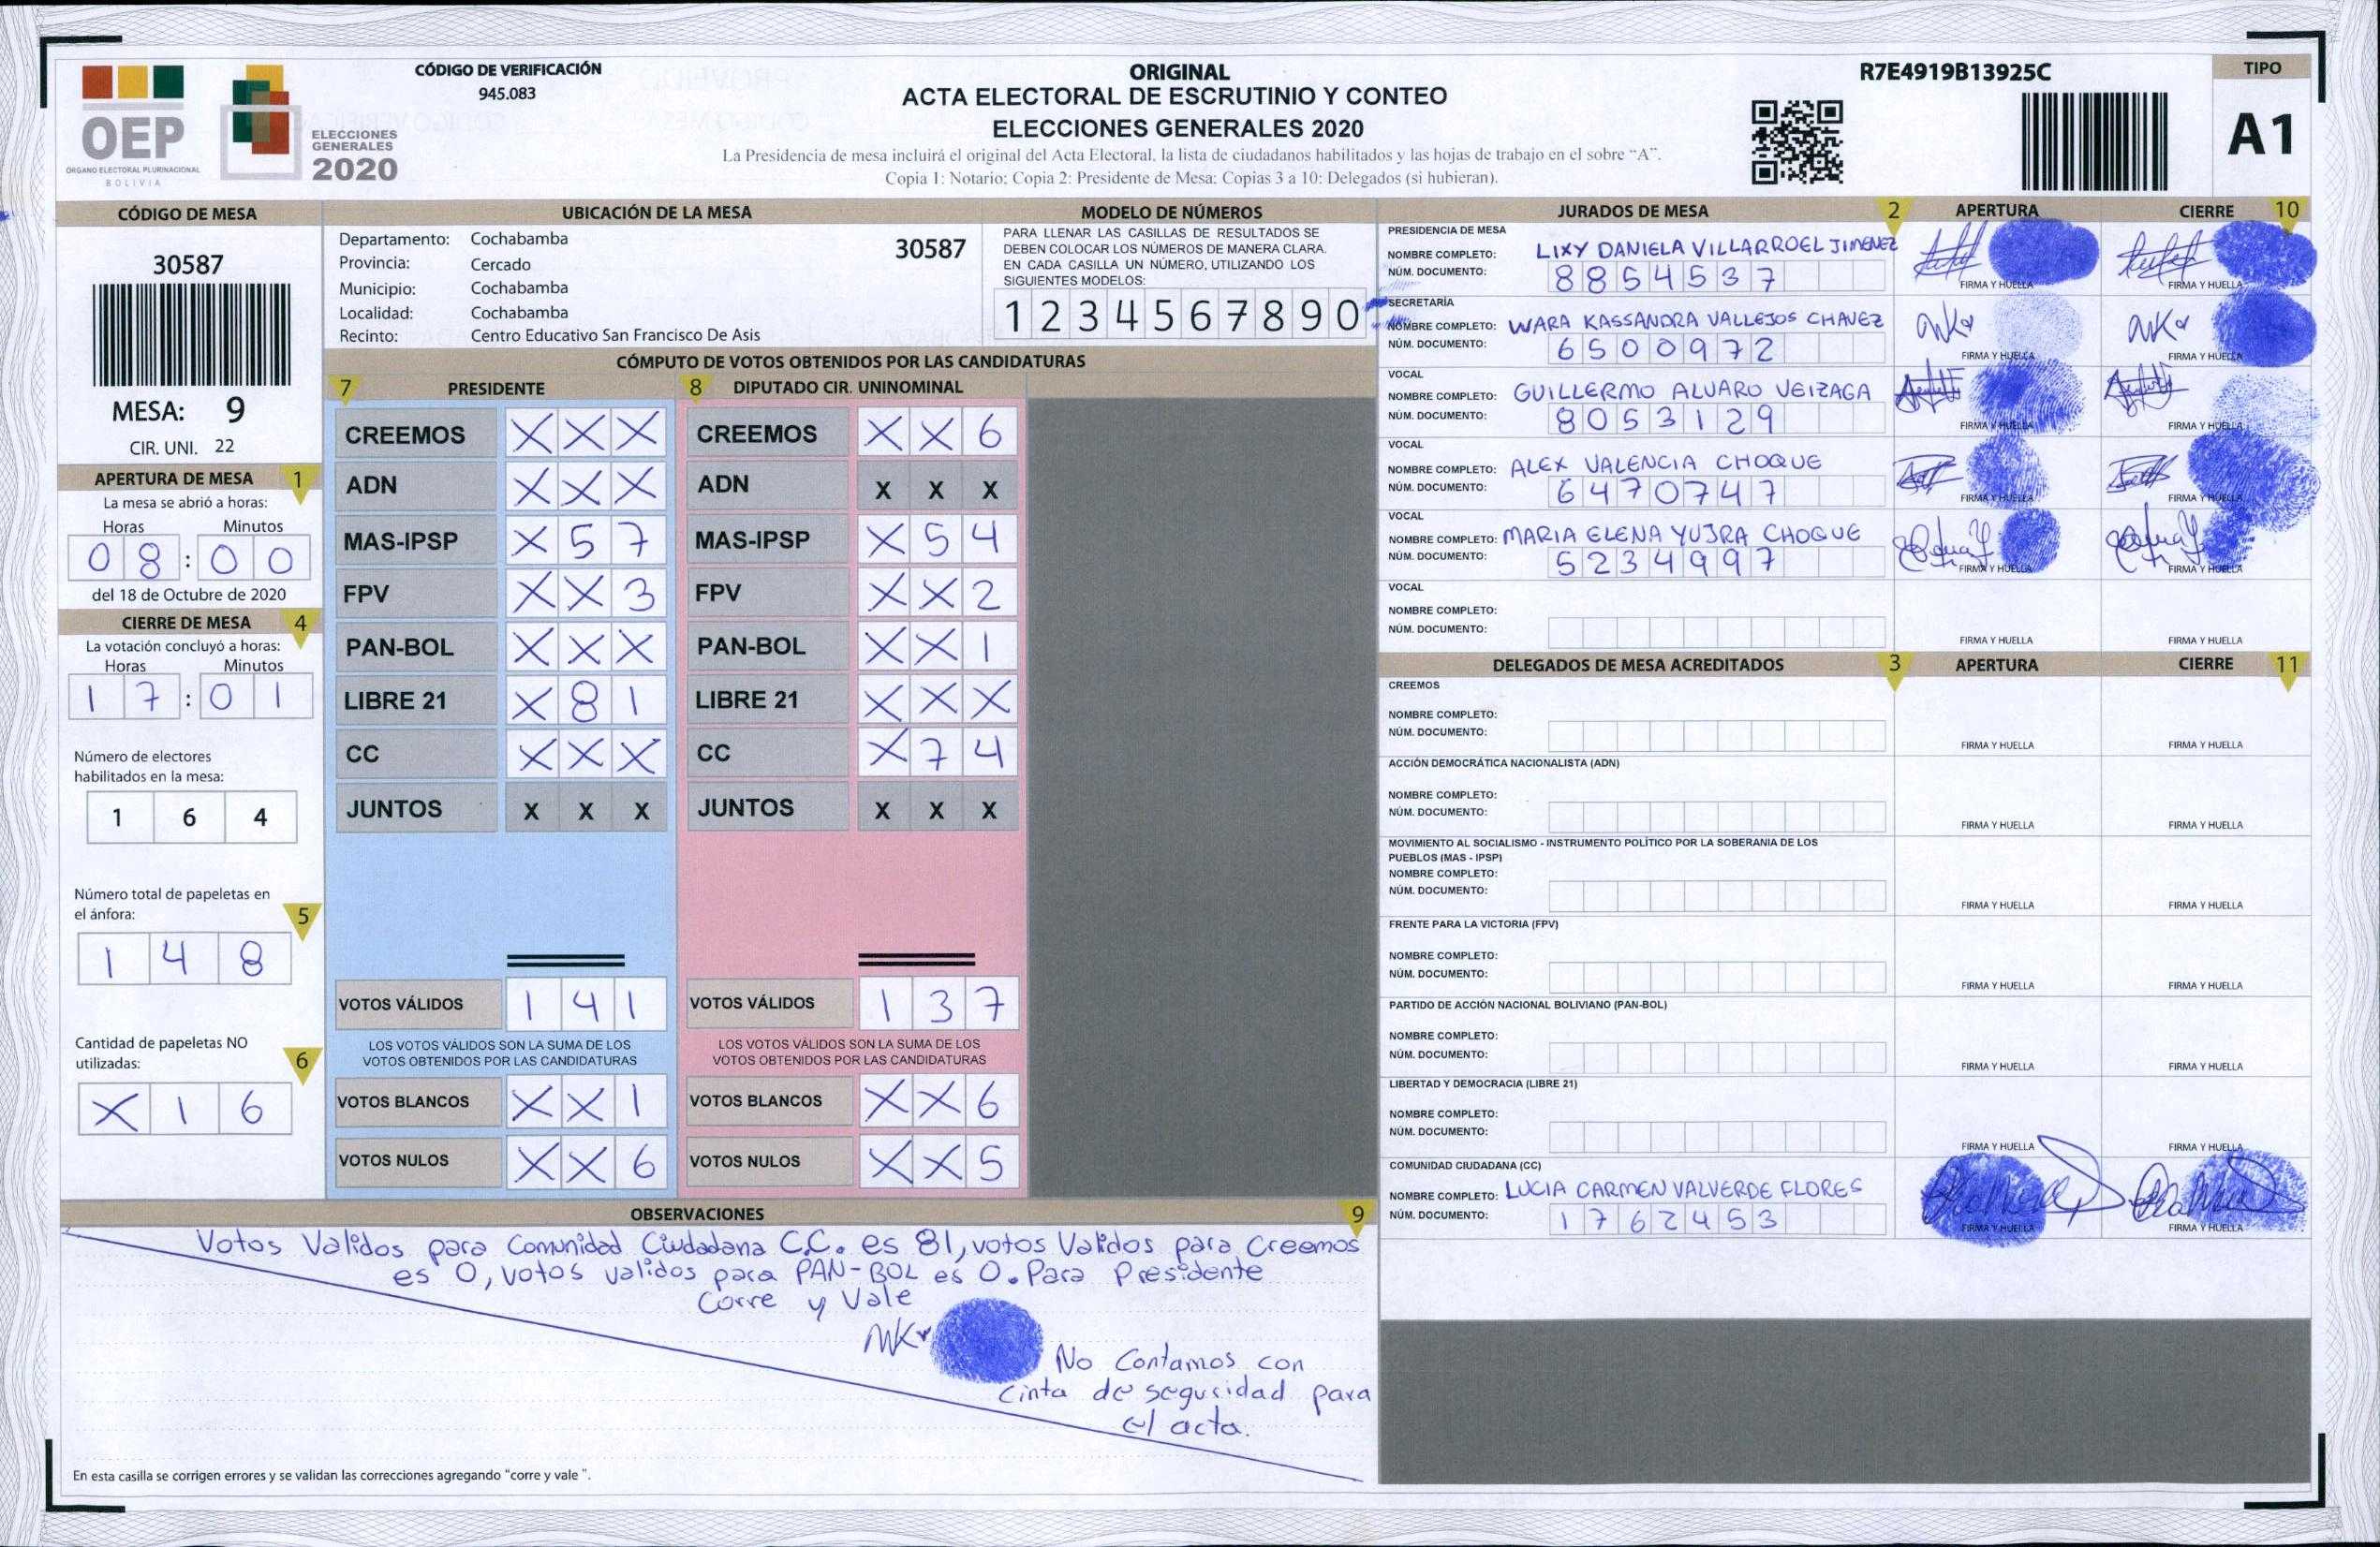 OEP
ÓRGANO ELECTORAL PLURINACIONAL
BOLIVIA
ELECCIONES
GENERALES
2020
CÓDIGO DE VERIFICACIÓN
945.083
ORIGINAL
ACTA ELECTORAL DE ESCRUTINIO Y CONTEO
ELECCIONES GENERALES 2020
La Presidencia de mesa incluirá el original del Acta Electoral, la lista de ciudadanos habilitados y las hojas de trabajo en el sobre “A”.
Copia 1: Notario; Copia 2: Presidente de Mesa; Copias 3 a 10: Delegados (si hubieran).
R7E4919B13925C
TIPO
A1
CÓDIGO DE MESA
30587
MESA: 9
CIR. UNI. 22
APERTURA DE MESA 1
La mesa se abrió a horas:
Horas Minutos
0 8 : 0 0
del 18 de Octubre de 2020
CIERRE DE MESA 4
La votación concluyó a horas:
Horas Minutos
1 7 : 0 1
Número de electores
habilitados en la mesa:
1 6 4
Número total de papeletas en
el ánfora: 5
1 4 8
Cantidad de papeletas NO
utilizadas: 6
X 1 6
UBICACIÓN DE LA MESA
Departamento: Cochabamba 30587
Provincia: Cercado
Municipio: Cochabamba
Localidad: Cochabamba
Recinto: Centro Educativo San Francisco De Asis
MODELO DE NÚMEROS
PARA LLENAR LAS CASILLAS DE RESULTADOS SE
DEBEN COLOCAR LOS NÚMEROS DE MANERA CLARA.
EN CADA CASILLA UN NÚMERO, UTILIZANDO LOS
SIGUIENTES MODELOS:
1 2 3 4 5 6 7 8 9 0
CÓMPUTO DE VOTOS OBTENIDOS POR LAS CANDIDATURAS
7 PRESIDENTE 8 DIPUTADO CIR. UNINOMINAL
CREEMOS X X X CREEMOS X X 6
ADN X X X ADN X X X
MAS-IPSP X 5 7 MAS-IPSP X 5 4
FPV X X 3 FPV X X 2
PAN-BOL X X X PAN-BOL X X 1
LIBRE 21 X 8 1 LIBRE 21 X X X
CC X X X CC X 7 4
JUNTOS X X X JUNTOS X X X
VOTOS VÁLIDOS 1 4 1 VOTOS VÁLIDOS 1 3 7
LOS VOTOS VÁLIDOS SON LA SUMA DE LOS LOS VOTOS VÁLIDOS SON LA SUMA DE LOS
VOTOS OBTENIDOS POR LAS CANDIDATURAS VOTOS OBTENIDOS POR LAS CANDIDATURAS
VOTOS BLANCOS X X 1 VOTOS BLANCOS X X 6
VOTOS NULOS X X 6 VOTOS NULOS X X 5
OBSERVACIONES 9
Votos Validos para Comunidad Ciudadana C.C. es 81, votos Validos para Creemos
es 0, votos validos para PAN-BOL es 0. Para Presidente
Corre y Vale
No Contamos con
cinta de seguridad para
el acta.
En esta casilla se corrigen errores y se validan las correcciones agregando “corre y vale”.
JURADOS DE MESA 2 APERTURA CIERRE 10
PRESIDENCIA DE MESA
NOMBRE COMPLETO: LIXY DANIELA VILLARROEL JIMENEZ
NÚM. DOCUMENTO: 8 8 5 4 5 3 7
FIRMA Y HUELLA FIRMA Y HUELLA
SECRETARÍA
NOMBRE COMPLETO: WARA KASSANDRA VALLEJOS CHAVEZ
NÚM. DOCUMENTO: 6 5 0 0 9 7 2
FIRMA Y HUELLA FIRMA Y HUELLA
VOCAL
NOMBRE COMPLETO: GUILLERMO ALVARO VEIZAGA
NÚM. DOCUMENTO: 8 0 5 3 1 2 9
FIRMA Y HUELLA FIRMA Y HUELLA
VOCAL
NOMBRE COMPLETO: ALEX VALENCIA CHOQUE
NÚM. DOCUMENTO: 6 4 7 0 7 4 7
FIRMA Y HUELLA FIRMA Y HUELLA
VOCAL
NOMBRE COMPLETO: MARIA ELENA YUJRA CHOQUE
NÚM. DOCUMENTO: 5 2 3 4 9 9 7
FIRMA Y HUELLA FIRMA Y HUELLA
VOCAL
NOMBRE COMPLETO:
NÚM. DOCUMENTO:
FIRMA Y HUELLA FIRMA Y HUELLA
DELEGADOS DE MESA ACREDITADOS 3 APERTURA CIERRE 11
CREEMOS
NOMBRE COMPLETO:
NÚM. DOCUMENTO:
FIRMA Y HUELLA FIRMA Y HUELLA
ACCIÓN DEMOCRÁTICA NACIONALISTA (ADN)
NOMBRE COMPLETO:
NÚM. DOCUMENTO:
FIRMA Y HUELLA FIRMA Y HUELLA
MOVIMIENTO AL SOCIALISMO - INSTRUMENTO POLÍTICO POR LA SOBERANIA DE LOS
PUEBLOS (MAS - IPSP)
NOMBRE COMPLETO:
NÚM. DOCUMENTO:
FIRMA Y HUELLA FIRMA Y HUELLA
FRENTE PARA LA VICTORIA (FPV)
NOMBRE COMPLETO:
NÚM. DOCUMENTO:
FIRMA Y HUELLA FIRMA Y HUELLA
PARTIDO DE ACCIÓN NACIONAL BOLIVIANO (PAN-BOL)
NOMBRE COMPLETO:
NÚM. DOCUMENTO:
FIRMA Y HUELLA FIRMA Y HUELLA
LIBERTAD Y DEMOCRACIA (LIBRE 21)
NOMBRE COMPLETO:
NÚM. DOCUMENTO:
FIRMA Y HUELLA FIRMA Y HUELLA
COMUNIDAD CIUDADANA (CC)
NOMBRE COMPLETO: LUCIA CARMEN VALVERDE FLORES
NÚM. DOCUMENTO: 1 7 6 2 4 5 3
FIRMA Y HUELLA FIRMA Y HUELLA